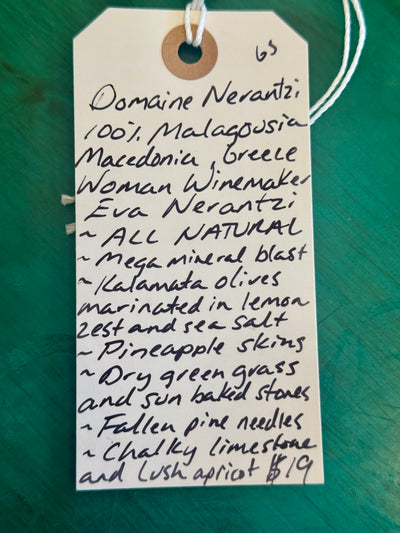 65
Domaine Nerantzi
100% Malagousia
Macedonia, Greece
Woman Winemaker
Eva Nerantzi
~ ALL NATURAL
~ Mega mineral blast
~ Kalamata olives
marinated in lemon
zest and sea salt
~ Pineapple skins
~ Dry green grass
and sun baked stones
~ Fallen pine needles
~ Chalky limestone
and lush apricot $19